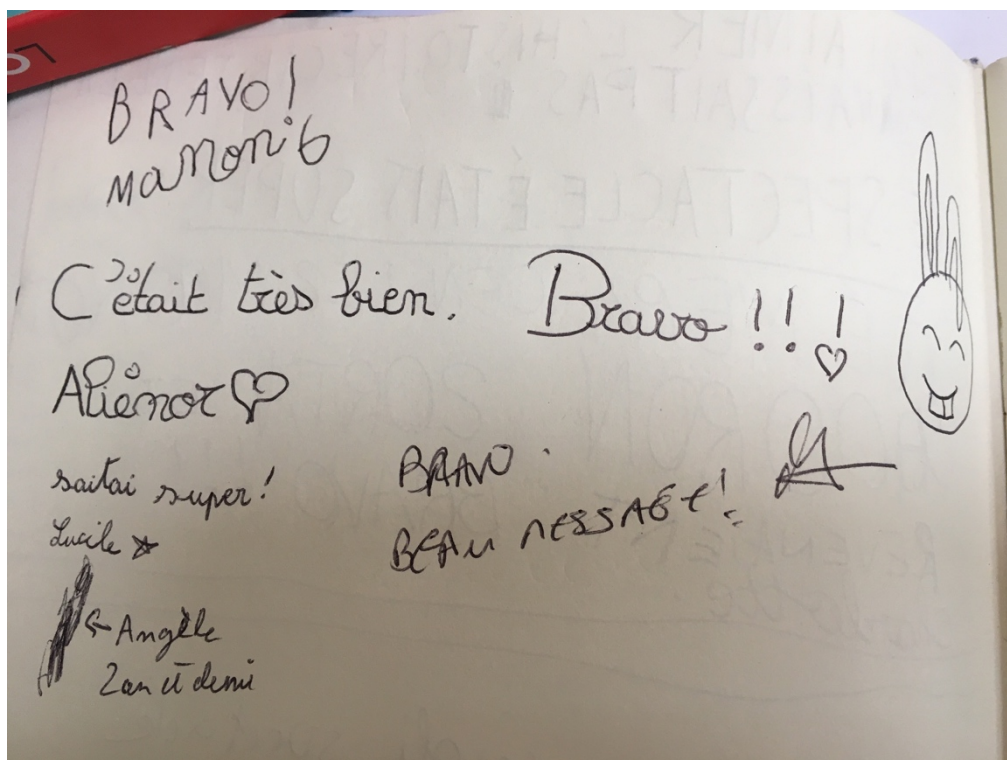 BRAVO!
MANON 6
C'était très bien.
Aliénor
Bravo !!!
saitai super!
Lucile
BRAVO.
BEAU MESSAGE!
← Angèle
2 an et demi